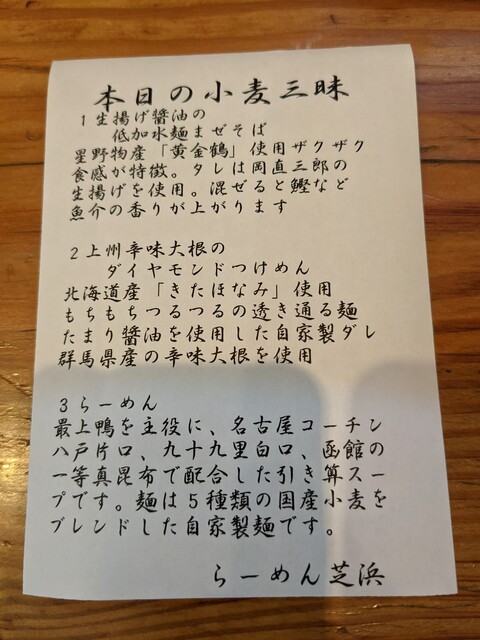 本日の小麦三昧
1生揚げ醤油の
低加水麺まぜそば
星野物産「黄金鶴」使用ザクザク
食感が特徴。タレは岡直三郎の
生揚げを使用。混ぜると鰹など
魚介の香りが上がります
2上州辛味大根の
ダイヤモンドつけめん
北海道産「きたほなみ」使用
もちもちつるつるの透き通る麺
たまり醤油を使用した自家製ダレ
群馬県産の辛味大根を使用
3らーめん
最上鴨を主役に、名古屋コーチン
八戸片口、九十九里白口、函館の
一等真昆布で配合した引き算スー
プです。麺は5種類の国産小麦を
ブレンドした自家製麺です。
らーめん芝浜